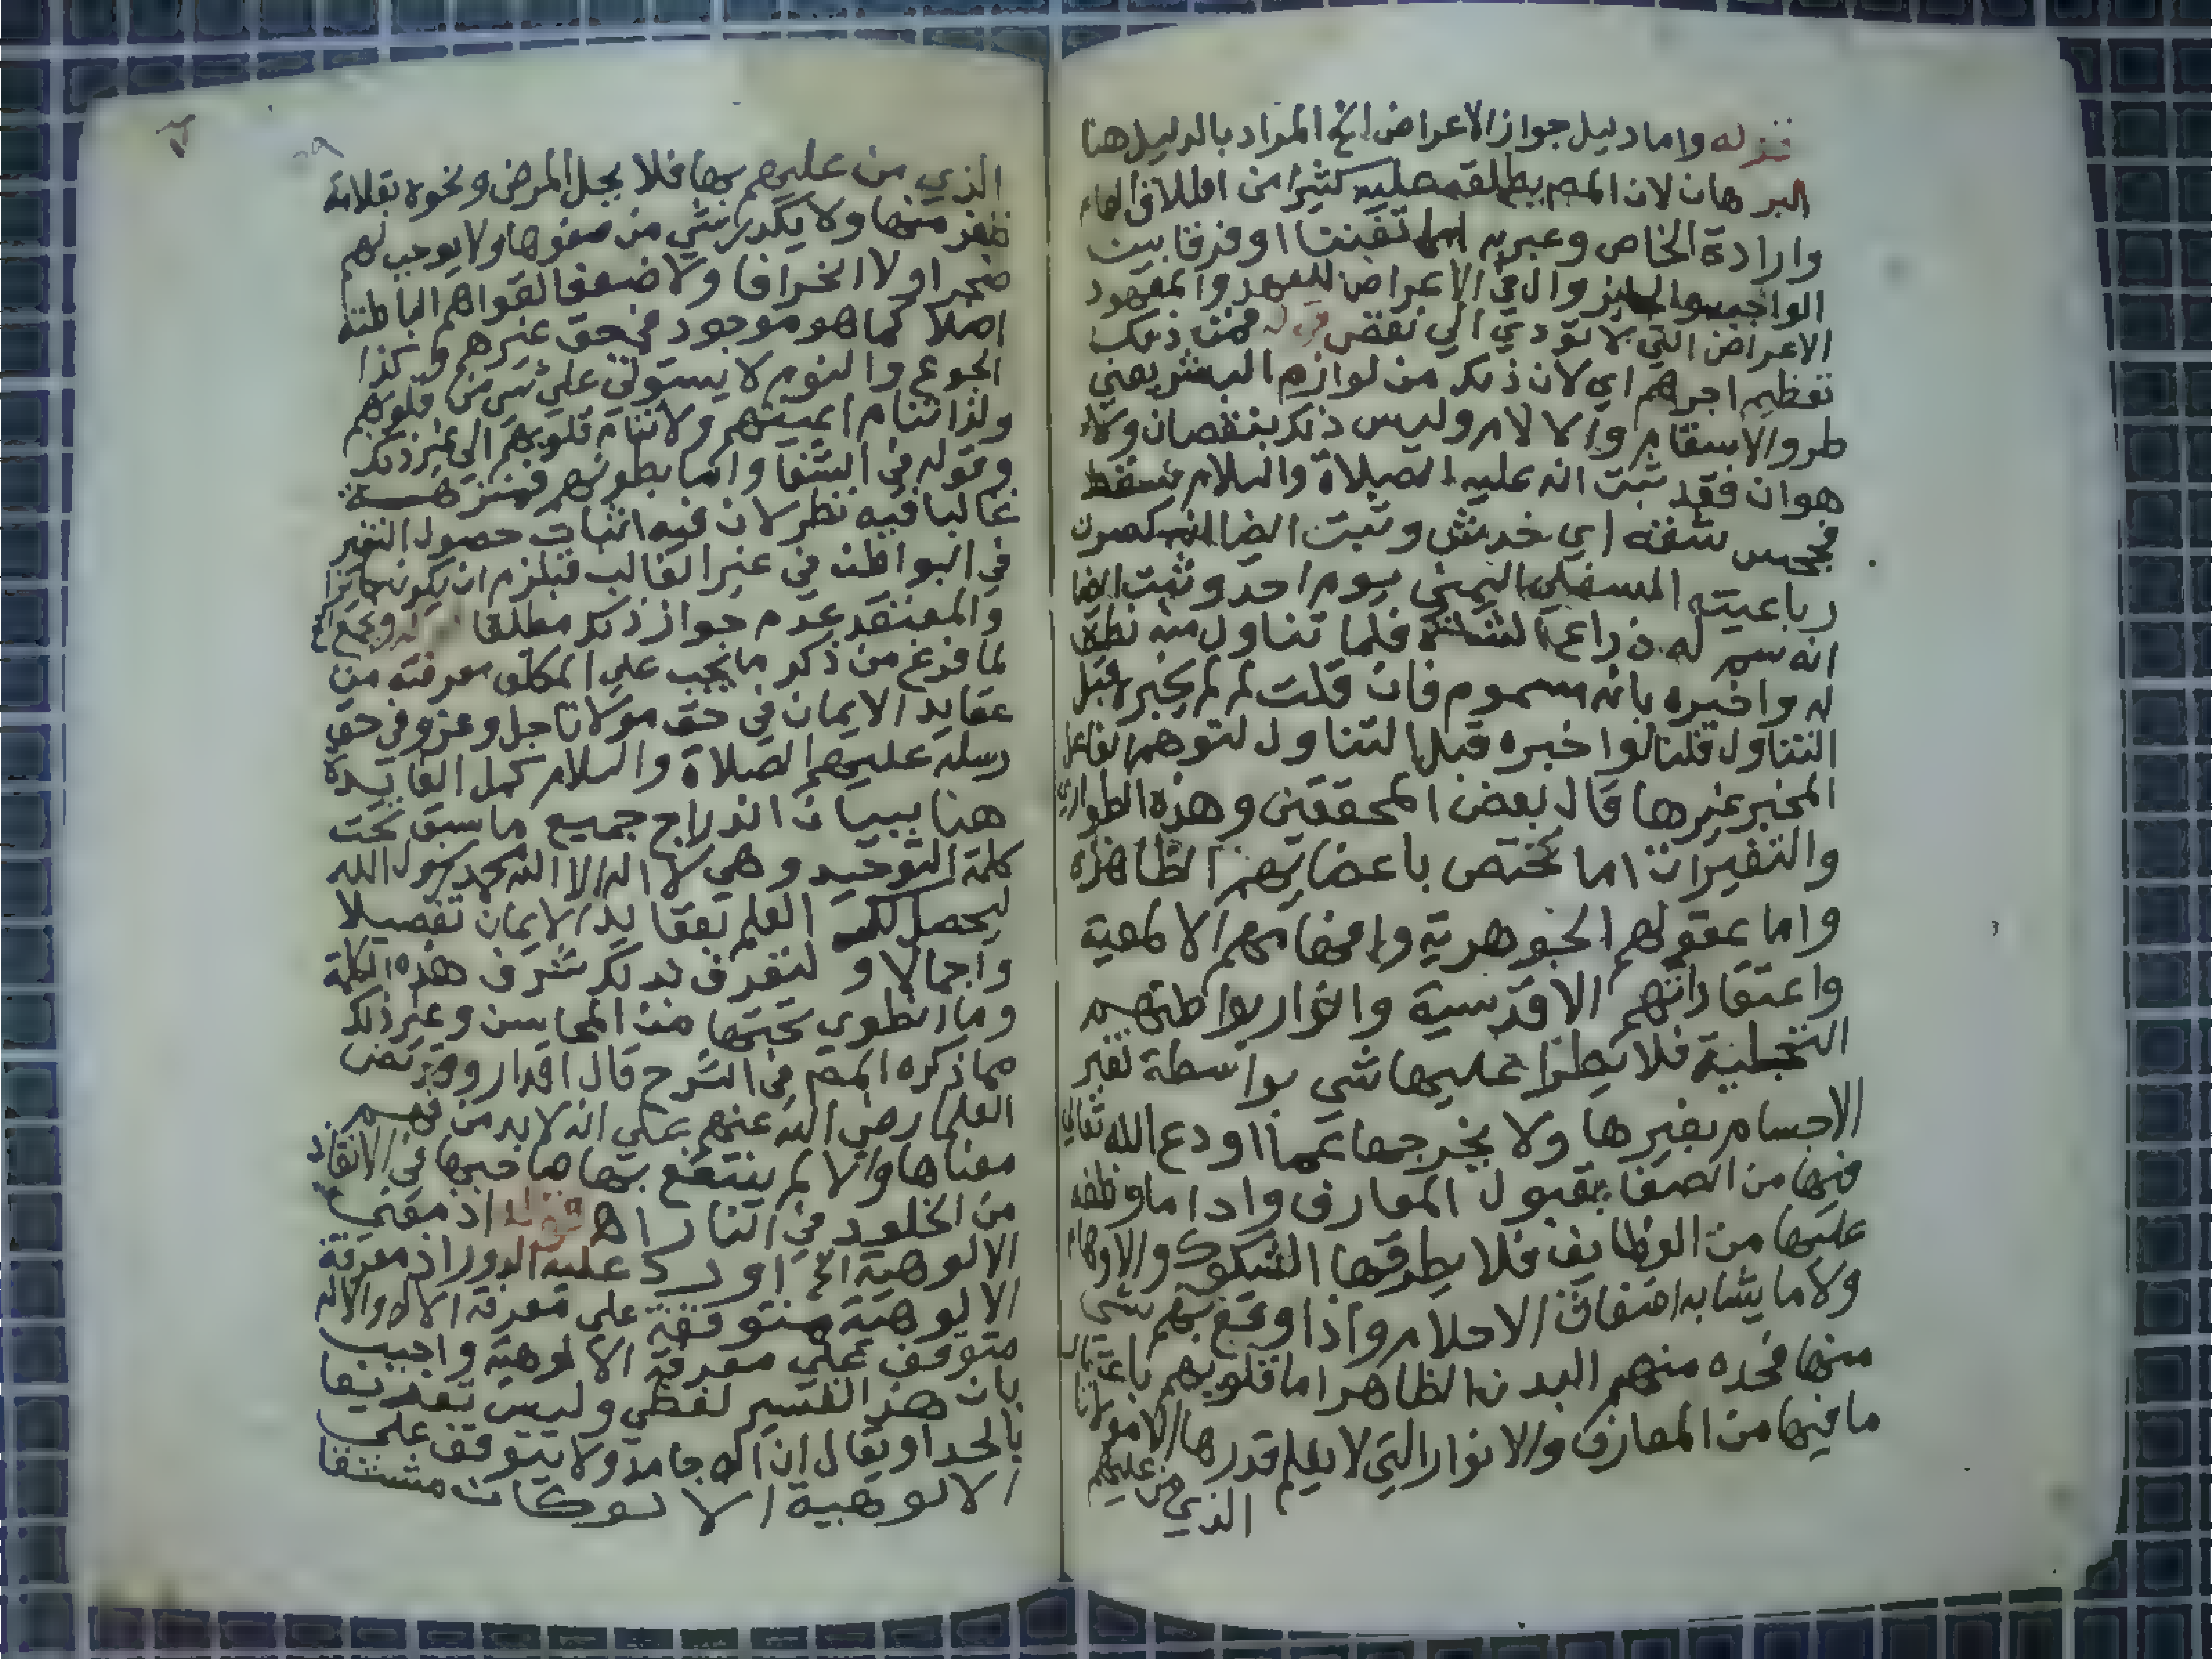 قوله واما دليل جواز الاعراض الخ المراد بالدليل هنا
البرهان لان المص يطلقه عليه كثيرا من اطلاق العام
وارادة الخاص وعبر به اما تفننا او فرقا بين
الواجب والجايز وال في الاعراض للعهد والمعهود
الاعراض التي لا تودي الي نقص قوله فمن ذلك
تعظيم اجرهم اي لان ذلك من لوازم البشر يعني
طرو الاسقام والالام وليس ذلك بنقصان ولا
هوان فقد ثبت انه عليه الصلاة والسلام سقط
فجحش شقه اي خدش وثبت ايضا انه كسرت
رباعيته السفلي اليمني يوم احد وثبت ايضا
انه سم له ذراع الشاة فلما تناول منه نطق
له واخبره بانه مسموم فان قلت لم لم يخبر قبل
التناول قلنا لو اخبره قبل التناول لتوهم ان الفاعل
المخبر غيرها قال بعض المحققين وهذه الطواري
والتغيرات انما تختص باعضايهم الظاهرة
واما عقولهم الجوهرية وافهامهم الالمعية
واعتقاداتهم الاقدسية وانوار بواطنهم
فلا يطرا عليها شي بواسطة تغير
الاجسام بغيرها ولا يخرجها عما اودع الله تعالي
فيها من الصفا بقبول المعارف وادا ما وظفه
عليها من الوظايف فلا يطرقها الشكوك والاوهام
ولا ما يشابه اضغاث الاحلام واذا وقع بهم شي
منها فحده منهم البدن الظاهر اما قلوبهم باعتبار
ما فيها من المعارف والانوار التي لا يعلم قدرها الا مولانا
الذي من عليهم
الذي من عليهم بها فلا يحل المرض ونحوه بقلامة
ظفر منها ولا يكدر شي من صفوها ولا يوجب لهم
ضجرا ولا انحرافا ولا ضعفا لقواهم الباطنة
اصلا كما هو موجود في حق غيرهم وكذا
الجوع والنوم لا يستولي علي شي من قلوبهم
ولذا تنام اعينهم ولا تنام قلوبهم الي غير ذلك
وقوله في الشفا واما بطونهم فمنزهة
غالبا فيه نظر لان فيه اثبات حصول التغير
في البواطن في غير الغالب فيلزم ان يكون جايزا
والمعتقد عدم جواز ذلك مطلقا قوله ويجمع الخ
لما فرغ من ذكر ما يجب علي المكلف معرفته من
عقايد الايمان في حق مولانا جل وعز وفي حق
رسله عليهم الصلاة والسلام كمل الفايدة
هنا ببيان اندراج جميع ما سبق تحت
كلمة التوحيد وهي لا اله الا الله محمد رسول الله
ليحصل لك العلم بعقايد الايمان تفصيلا
واجمالا ولتعرف بذلك شرف هذه الكلمة
وما انطوي تحتها من المحاسن وغير ذلك
مما ذكره المص في الشرح قال اقدار وقد نص
العلما رضي الله عنهم علي انه لا بد من فهم
معناها والا لم ينتفع بها صاحبها في الانقاذ
من الخلود في النار اه قوله اذ معني
الالوهية الخ اورد عليه الدور اذ معرفة
الالوهية متوقفة علي معرفة الاله والاله
متوقف علي معرفة الالوهية واجيب
بان هذا التفسير لفظي وليس تعريفا
بالحد او يقال ان اله جامد ولا يتوقف علي
الالوهية الا لو كان مشتقا